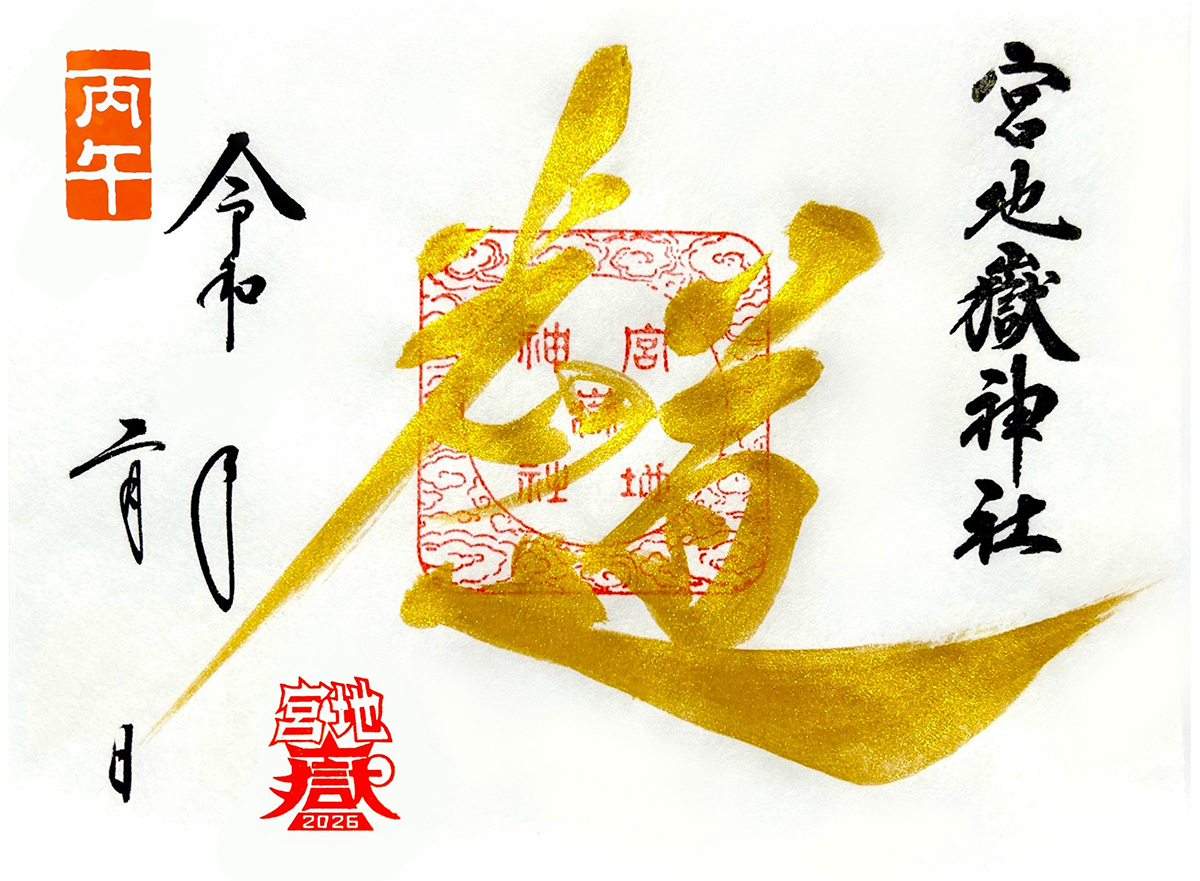 宮地嶽神社
宮地
嶽
神社
令和
二月
日
丙午
宮地
嶽
2026